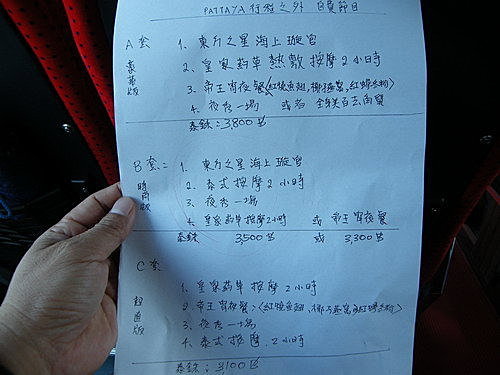 PATTAYA 行程之外 自費節目
A 套 1. 東方之星海上璇宮
豪華版 2. 皇家藥草熱敷按摩2小時
3. 帝王宵夜餐(紅燒魚翅,椰子燕窩,紅蟳冬粉)
4. 夜秀一場 或者
泰銖:3,800 B
B 套: 1. 東方之星海上璇宮
時尚版 2. 泰式按摩2小時
3. 夜秀一場
4. 皇家藥草按摩2小時 或 帝王宵夜餐
泰銖 3,500 B 或 3,300 B
C 套
1. 皇家藥草按摩2小時
超值版 2. 帝王宵夜餐(紅燒魚翅,椰子燕窩,紅蟳冬粉)
3. 夜秀一場
4. 泰式按摩.2小時
泰銖:3,100 B